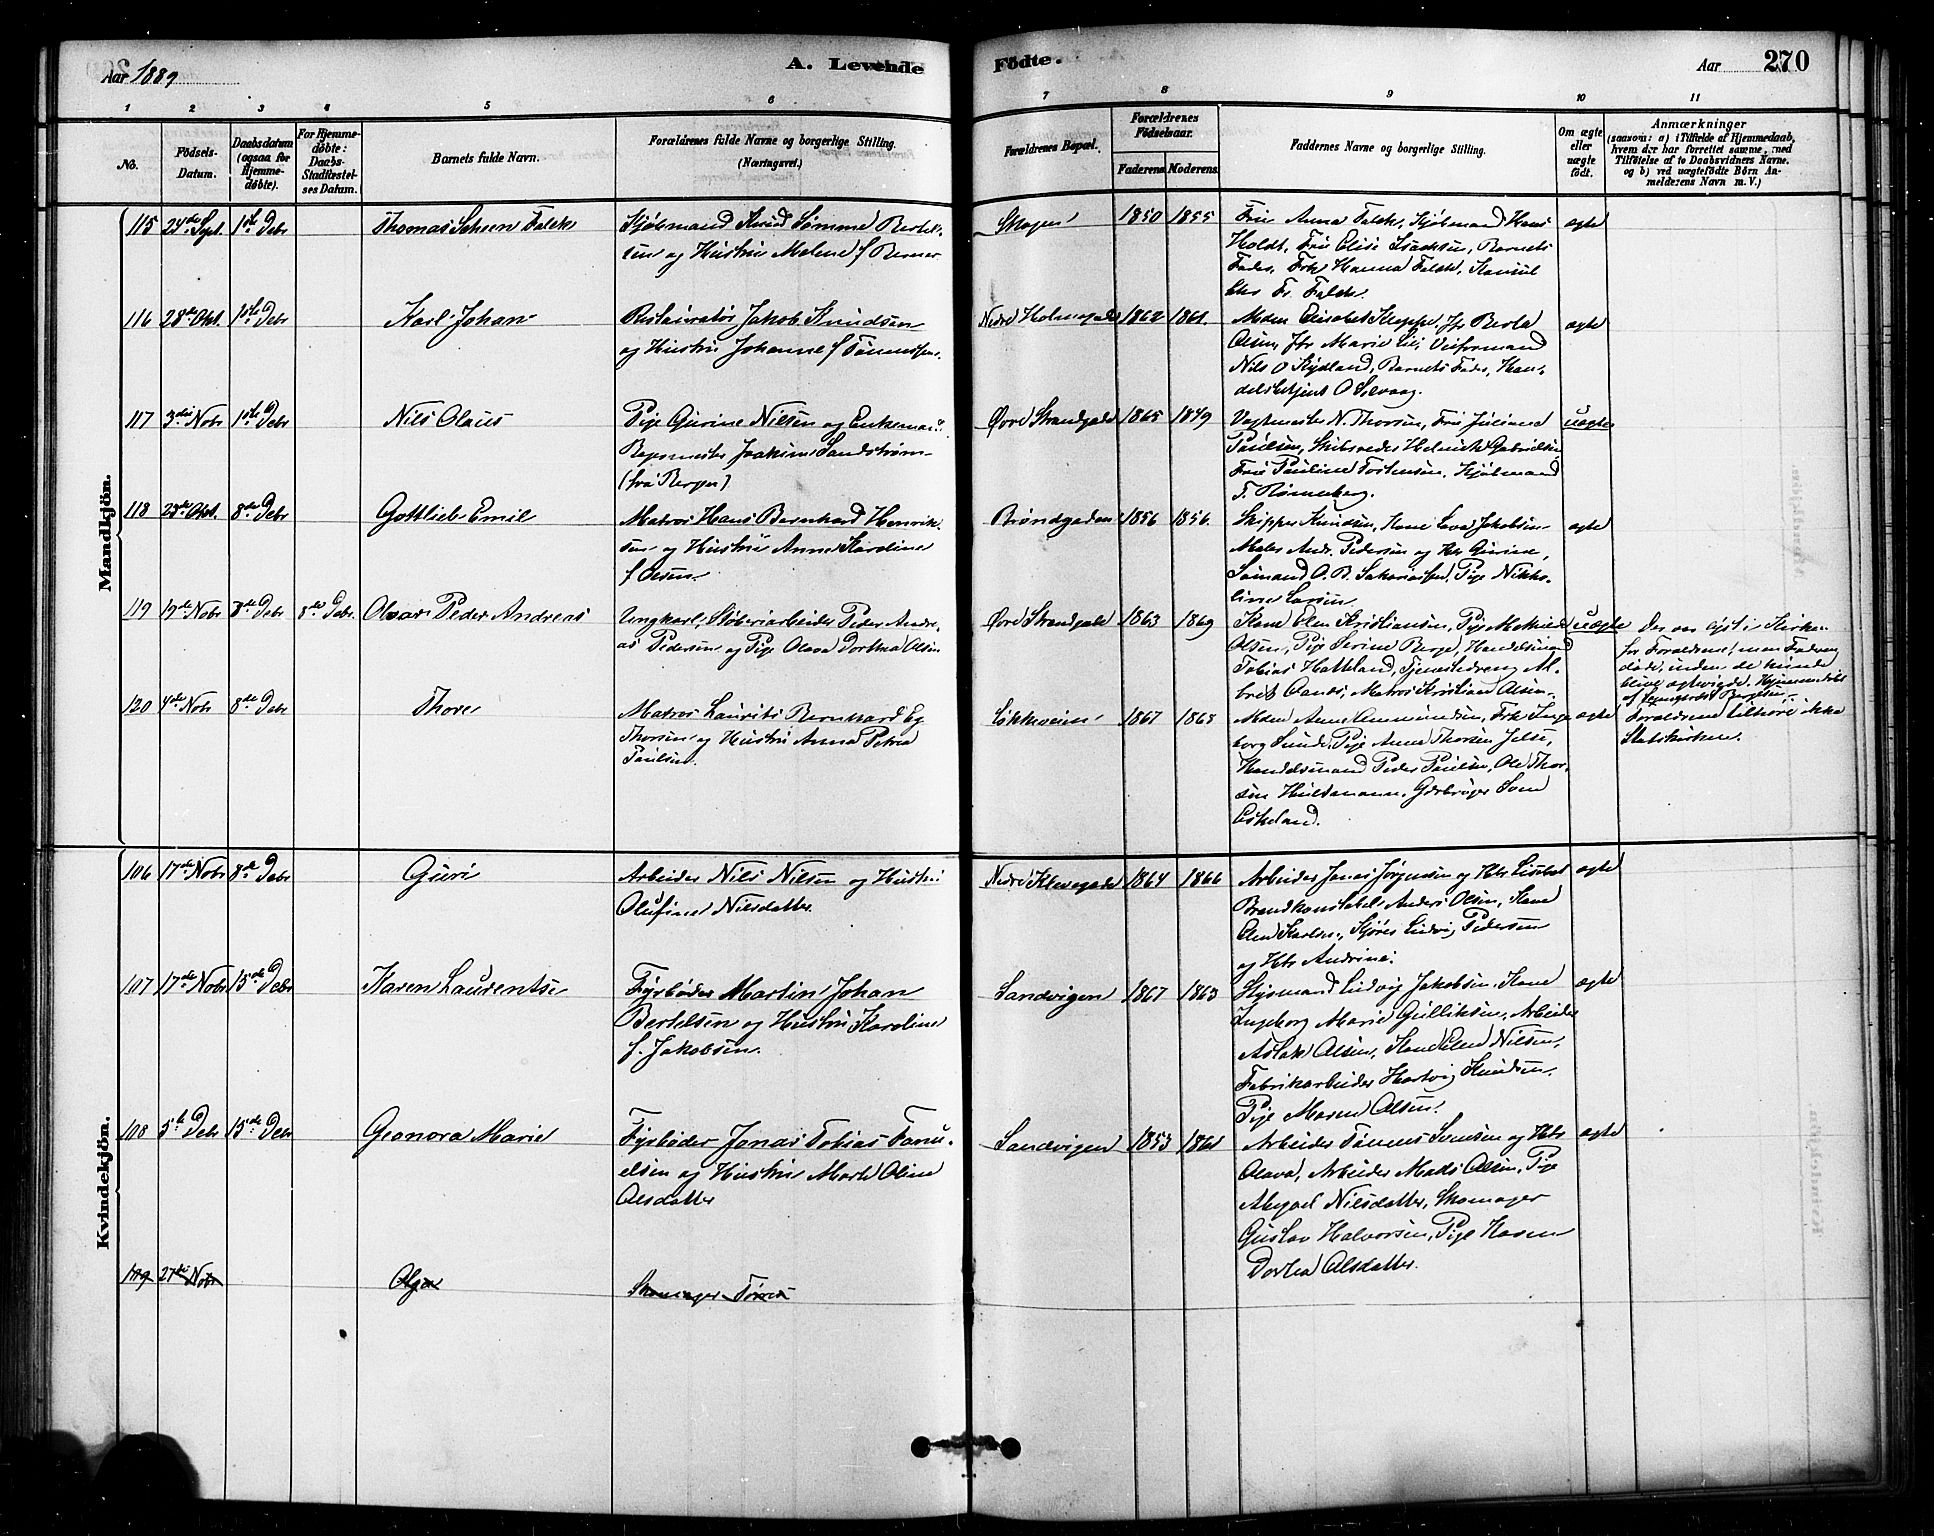 Aar 1889
A. Levende
Födte.
Aar
270
1 2 3 4 5 6 7 8 9 10 11
No.
Födsels-Datum.
Daabsdatum (ogsaa for Hjemmedøbte).
For Hjemmedøbte: Daabs-Stadfæstelses Datum.
Barnets fulde Navn.
Forældrenes fulde Navne og borgerlige Stilling. (Næringsvei.)
Forældrenes Bopæl.
Forældrenes Födselsaar.
Faderens. Moderens.
Faddernes Navne og borgerlige Stilling.
Om ægte eller uægte födt.
Anmærkninger
(saasom: a) i Tilfælde af Hjemmedaab, hvem der har forrettet samme, med Tilföielse af to Daabsvidners Navne. og b) ved uægtefödte Börn Anmelderens Navn m. V.)
Mandkjön.
115 24de Sept. 1ste Debr Thomas Falck
Hjølmand Knud Sømme Bertel-
sen og Hustru Malene f. Berner
Skagen 1850 1855
Fru Anna Falck, Hjølmand Hans
Holdt, Fru Elise Isachsen, Barnets
Fader, Frk Hanna Falck, Konsul
Chr Fr. Falck.
ægte
116 28de Okt. 1ste Debr Karl Johan
Restauratør Jakob Knudsen
og Hustru Johanne f.
Nedre Holmegade 1862 1861.
Mdm Elisabet Kleppe, Jfr Berta
Olsen, Jfr Marie Lie, Veiformand
Nils O Kydland, Barnets Fader, Han-
delsbetjent O Selvaag.
ægte
117 3die Nobr 1ste Debr Nils Olaus
Pige Gurine Nilsen og Enkemand
Joakim Sandstrøm
(fra Bergen)
Øvre Strandgade 1865 1849
Vagtmester N. Thorsen, Fru Juliane
Paulsen, Skibsreder Helmich Gabrielsen
Fru Pauline Torkensen, Hjølmand
T. Rønneberg.
uægte
118 23de Okt. 8de Debr Gottlieb Emil
Matros Hans Bernhard Henrik-
sen og Hustru Anne Karoline
f Olsen.
Brøndgaden 1856 1856.
Skipper Knudsen, Kone Lava Jakobsen
Maler Andr. Pedersen og Hr Gurine,
Sømand O. B. Sakariassen, Pige Nikko-
line Larsen.
ægte
119 19de Nobr 8de Debr 8de Debr. Oskar Peder Andreas
Ungkarl, Støberiarbeider Peder Andre-
as Pedersen og Pige Olava Dorthea Olsen
Øvre Strandgade 1863 1869
Kone Elen Kristiansen, Pige Mathilde
Olsen, Pige Serine Berge, Handelsmand
Tobias Hatteland, Tjenestedreng Al-
bert Aanes, Matros Kristian Olsen.
uægte
Der var lyst i Kirken
for Forældrene, men Faderen
døde, inden de kunde
blive ægteviede. Hjemmedøbt
af Bergesen.
120 4de Nobr 8de Debr Thore
Matros Laurits Bernhard Eg
Thorsen og Hustru Anna Petrea
Paulsen.
Løkkeveien 1867 1868
Mdm Anne Ammundsen, Frk Inge
borg Sunde, Pige Anna Thorsen Jelse,
Handelsmand Peder Paulsen, Ole Thor-
sen Hultsmann, Gårbruger Sven
Eskeland.
ægte
Forældrene tilhøre ikke
Statskirken.
Kvindekjön.
106 17de Nobr 8de Debr Guri
Arbeider Nils Nilsen og Hustru
Olufine Nilsdatter.
Nedre Klevegade 1864 1866
Arbeider Jonas Jørgensen og Hr Lisabet
Brandkonstabel Anders Olsen, Kone
Elen Karlsen, Kjører Ludvig Pedersen
og Hr Andrine.
ægte
107 17de Nobr 15de Debr Karen Laurentse
Fyrbøder Martin Johan
Bertelsen og Hustru Karoline
f. Jakobsen.
Sandvigen 1867 1863
Ludvig Jakobsen, Kone
Ingeborg Marie Gulliksen, Arbeider
Aslak Olsen, Kone Elen Nilsen,
Fabrikarbeider Hartvig Knudsen,
Pige Maren Olsen.
ægte
108 5te Debr 15de Debr Geonora Marie
Fyrbøder Jonas Tobias Tanu-
elsen og Hustru Marte Oline
Olsdatter
Sandvigen 1853 1861
Arbeider Tønnes Svensen og Hr
Olava, Arbeider Mads Olsen, Pige
Abigael Nilsdatter, Skomager
Gustav Halvorsen, Pige Karen
Dortea Olsdatter.
ægte
109 27de Nobr Olga
Skomager Tørres